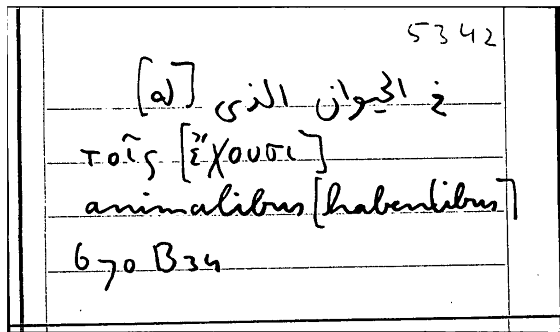 5342
في الحيوان الذى [له]
τοῖς [ἔχουσι]
animalibus [habentibus]
670 B34